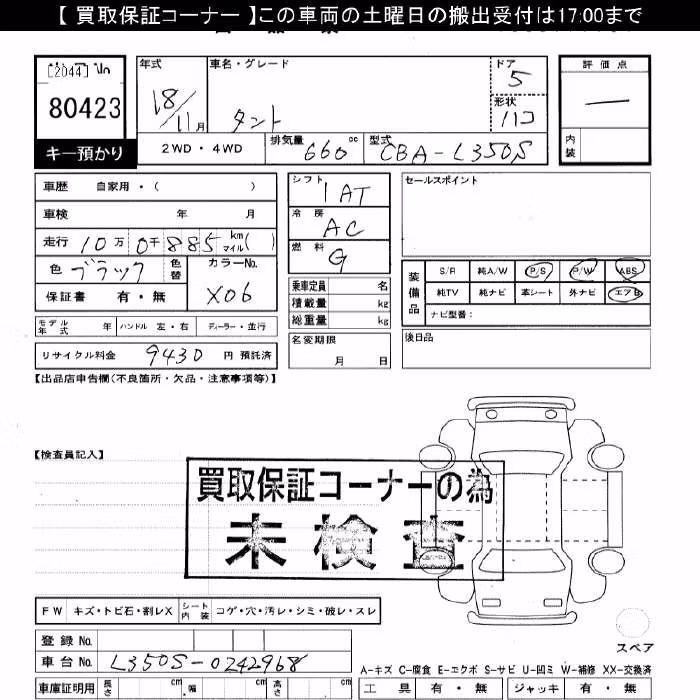 【 買取保証コーナー 】この車両の土曜日の搬出受付は17:00まで
[2044] 1/n
80423
キー預かり
年式
18/11月
車名・グレード
タント
ドア
5
形状
ハコ
評価点
―
内装
2WD・4WD
排気量 660 cc
型式 CBA-L350S
車歴 自家用・( )
車検 年 月
走行 10万 0千 885 km マイル( )
色 ブラック 色替
カラーNo. X06
保証書 有・無
シフト 1AT
冷房 AC
燃料 G
乗車定員 名
積載量 kg
総重量 kg
名変期限 月 日
セールスポイント
装備品
S/R 純A/W P/S P/W ABS
純TV 純ナビ 革シート 外ナビ エアB
ナビ型番:
後日品
モデル年式 年 ハンドル 左・右 ディーラー・並行
リサイクル料金 9430 円 預託済
【出品店申告欄(不良箇所・欠品・注意事項等)】
【検査員記入】
買取保証コーナーの為
未検査
FW キズ・トビ石・割レX シート内装 コゲ・穴・汚レ・シミ・破レ・スレ
登録No.
車台No. L350S-0242968
車庫証明用 長さ cm 幅 cm 高さ cm
スペア
A-キズ C-腐食 E-エクボ S-サビ U-凹ミ W-補修 XX-交換済
工具 有・無 ジャッキ 有・無